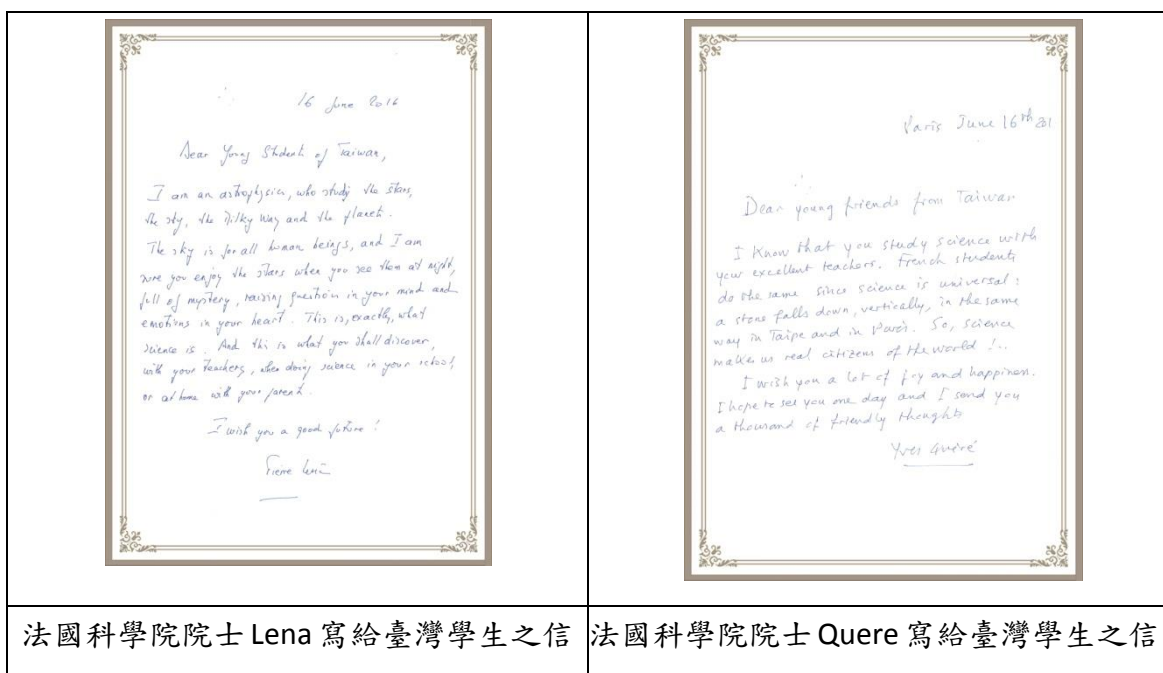 16 June 2016
Dear Young Student of Taiwan,
I am an astrophysicist, who study the stars,
the sky, the Milky Way and the planets.
The sky is for all human beings, and I am
sure you enjoy the stars when you see them at night,
full of mystery, raising question in your mind and
emotions in your heart. This is, exactly, what
science is. And this is what you shall discover,
with your teachers, when doing science in your school,
or at home with your parent.
I wish you a good future !
Pierre Lena
法國科學院院士 Lena 寫給臺灣學生之信
Paris June 16th 201
Dear young friends from Taiwan
I know that you study science with
your excellent teachers. French students
do the same since science is universal :
a stone falls down, vertically, in the same
way in Taipe and in Paris. So, science
makes us real citizens of the world !..
I wish you a lot of joy and happiness.
I hope to see you one day and I send you
a thousand of friendly thoughts
Yves Quéré
法國科學院院士 Quere 寫給臺灣學生之信